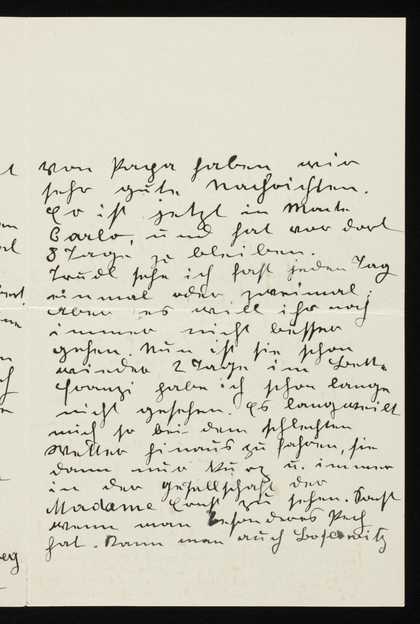 von Papa haben wir
sehr gute Nachrichten.
Er ist jetzt in Monte
Carlo, und hat vor dort
8 Tage zu bleiben.
Trudl sehe ich fast jeden Tag
einmal oder zweimal;
aber es will ihr noch
immer nicht besser
gehen. Nun ist sie schon
wieder 2 Tage im Bett.
Franzi habe ich schon lange
nicht gesehen. Es langweilt
mich so bei dem schlechten
Wetter hinaus zu fahren, sie
dann nur kurz u. immer
in der Gesellschaft der
Madame Ernst zu sehen. Fast
wenn man besonderes Pech
hat. Kann man auch Boscowitz